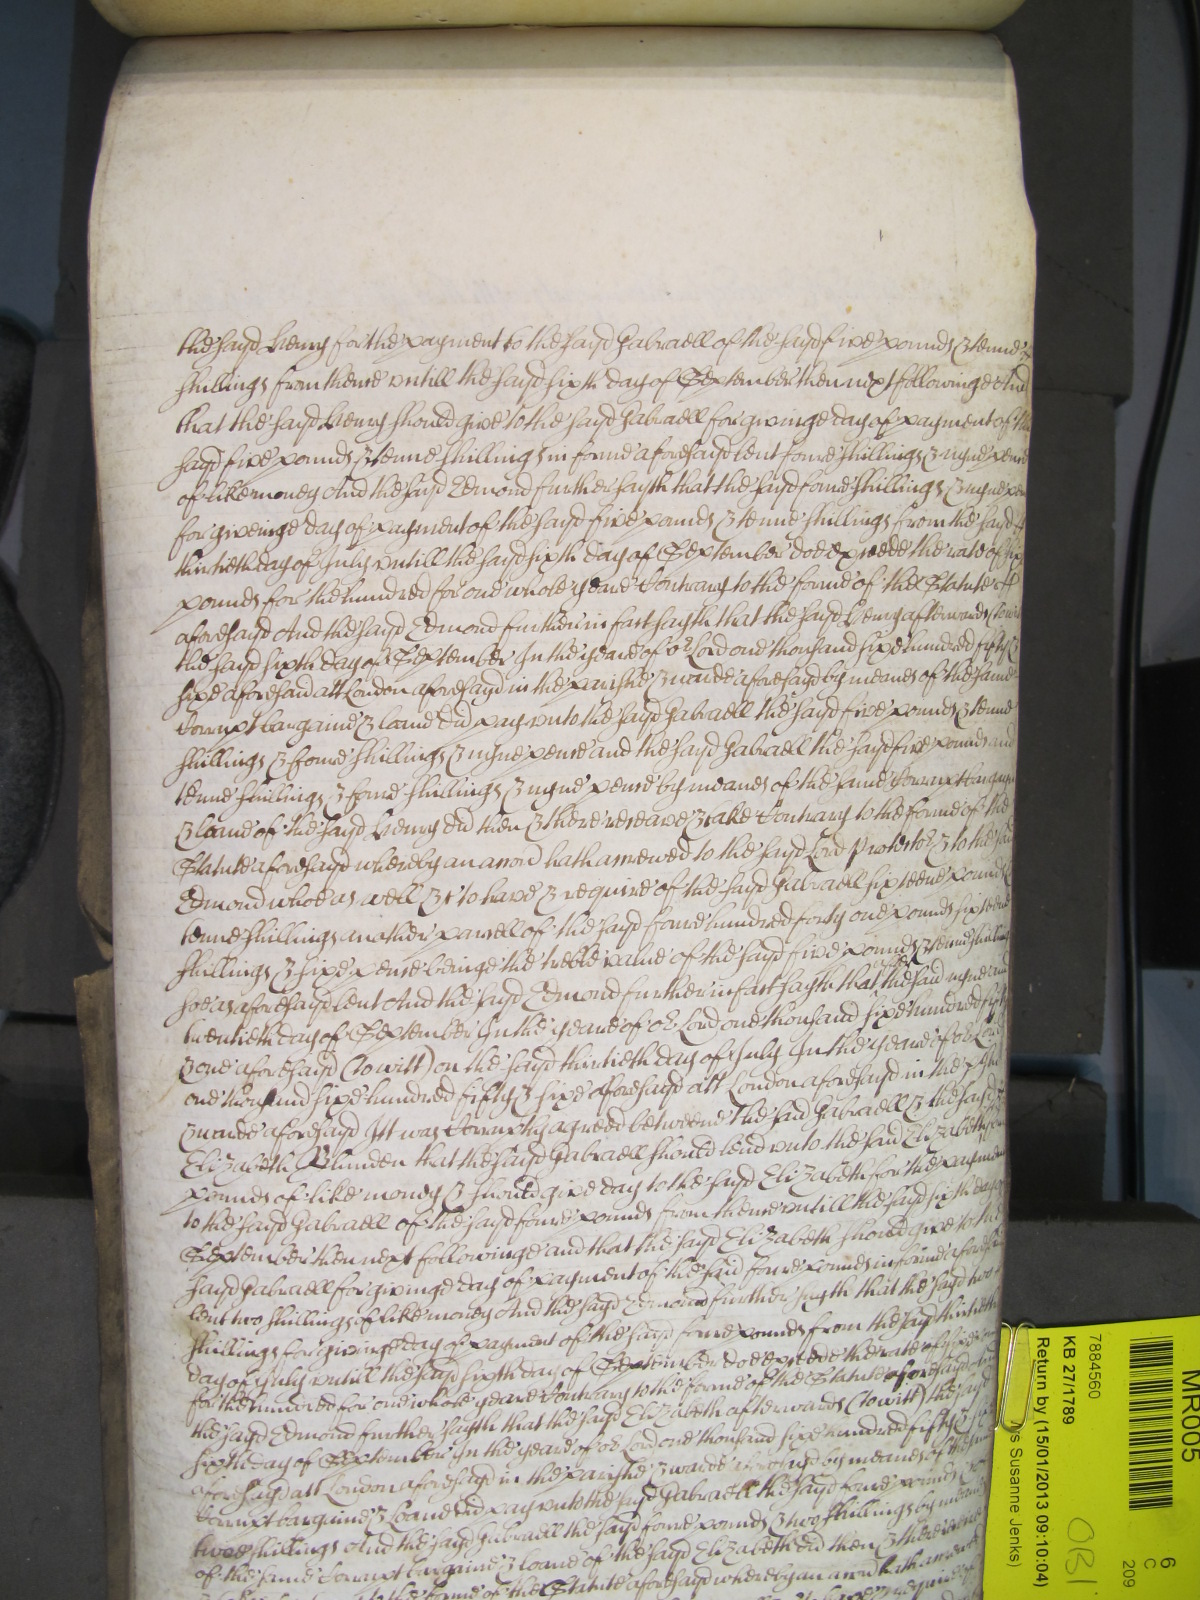 the sayd Henry for the payment to the sayd Gabraell of the sayd five pounds & tenne
shillings from thence untill the sayd sixth day of September then next followinge And
that the sayd Henry should give to the sayd Gabraell for givinge day of payment of the
sayd five pounds & tenne shillings in forme aforesayd lent foure shillings & nyne pence
of like money And the sayd Edmond further sayth that the sayd foure shillings & nyne pence
for giveinge day of payment of the sayd five pounds & tenne shillings from the sayd
thirtieth day of July untill the sayd sixth day of September doe exceede the rate of six
pounds for the hundred for one whole yeare Contrary to the forme of the Statute
aforesayd And the sayd Edmond further in fact sayth that the sayd Henry afterwards (to witt
the sayd sixth day of September In the yeare of or Lord one thousand sixe hundred fifty &
sixe aforesaid att London aforesayd in the parishe & warde aforesayd by meanes of the same
Corrupt bargaine & loane did pay unto the sayd Gabraell the sayd five pounds & tenne
shillings & foure shillings & nyne pence and the sayd Gabraell the sayd five pounds and
tenne shillings & foure shillings & nyne pence by meanes of the same Corrupt bargaine
& loane of the sayd Henry did then & there receave & take Contrary to the forme of the
Statute aforesayd whereby an accon hath accrewed to the sayd Lord Protector & to the said
Edmond whoe as well &c to have & require of the sayd Gabraell sixteene pounds &
tenne shillings another parcell of the sayd foure hundred forty one pounds sixteene
shillings & sixe pence beinge the treble value of the sayd five pounds & tenne shillings
soe as aforesayd lent And the sayd Edmond further in fact sayth that after the said nyne and
twentieth day of September In the yeare of or Lord one thousand sixe hundred fifty
& one aforesayd (to witt) on the sayd thirtieth day of July In the yeare of or Lord
one thousand sixe hundred fifty & sixe aforesayd att London aforesayd in the parishe
& warde aforesayd Itt was Corruptly agreed betweene the said Gabraell & the sayd
Elizabeth Blunden that the sayd Gabraell should lend unto the said Elizabeth foure
pounds of like money & should give day to the sayd Elizabeth for the payment
to the sayd Gabraell of the sayd foure pounds from thence untill the sayd sixth day of
September then next followinge and that the sayd Elizabeth should give to the
sayd Gabraell for givinge day of payment of the said foure pounds in forme aforesaid
lent two shillings of like money And the sayd Edmond further sayth that the sayd two
shillings for givinge day of payment of the sayd foure pounds from the sayd thirtieth
day of July untill the sayd sixth day of September doe exceede the rate of six pounds
for the hundred for one whole yeare Contrary to the forme of the Statute aforesayd And
the sayd Edmond further sayth that the sayd Elizabeth afterwards (to witt) the sayd
sixth day of September In the yeare of or Lord one thousand sixe hundred fifty & sixe
aforesayd att London aforesayd in the parishe & warde aforesayd by meanes of the same
Corrupt bargaine & loane did pay unto the sayd Gabraell the sayd foure pounds &
twoe shillings And the sayd Gabraell the sayd foure pounds & two shillings by meanes
of the same Corrupt bargaine & loane of the sayd Elizabeth did then & there receave
to the forme of the Statute aforesayd whereby an accon hath accrewed
MR005
6
C
209
7884560
KB 27/1789
Return by (15/01/2013 09:10:04)
Susanne Jenks)
OB1